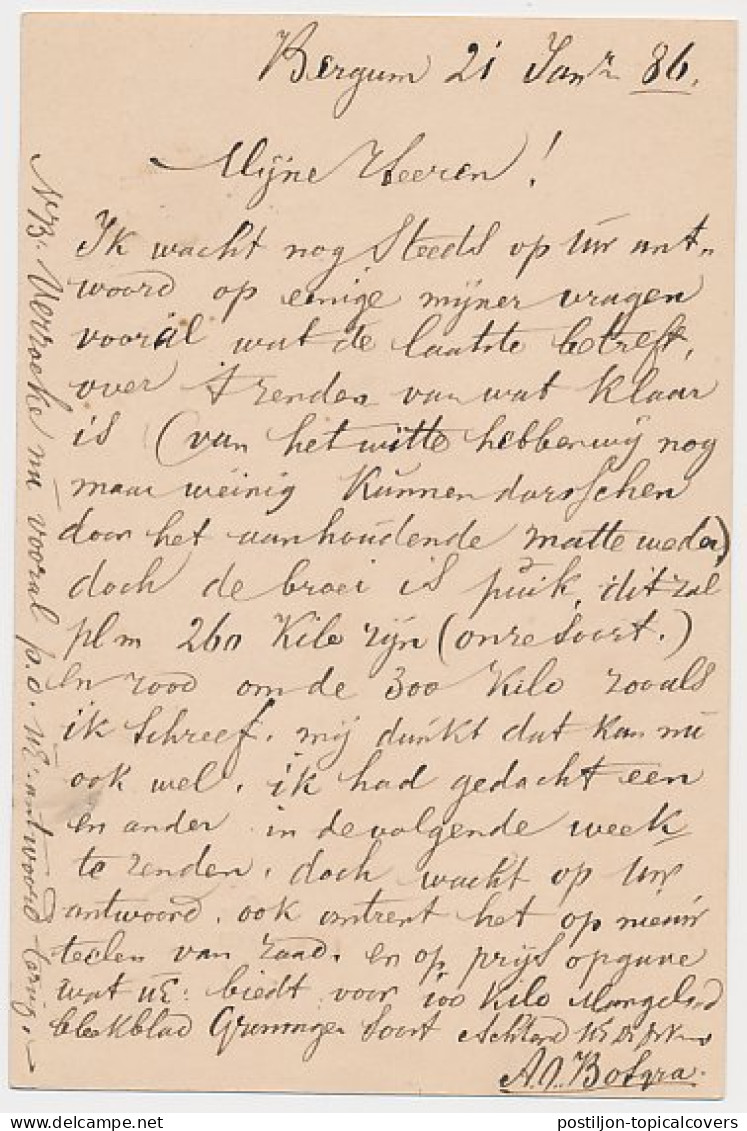 Bergum 21 Janr 86.
Mijne Heeren!
Ik wacht nog steeds op Uw ant-
woord op eenige mijner vragen
vooral wat de laatste betreft,
over 't zenden van wat klaar
is (van het witte hebben wij nog
maar weinig kunnen dorsschen
door het aanhoudende matte weder)
doch de broei is puik, dit zal
plm 260 Kilo zijn (onze soort.)
En rood om de 300 Kilo zooals
ik schreef. mij dunkt dat kan nu
ook wel. ik had gedacht een
en ander in de volgende week
te zenden. doch wacht op Uw
antwoord. ook omtrent het op nieuw
teelen van zaad. en op prijs opgave
wat UE: biedt voor 100 Kilo Mangelzd
bleekblad Groninger Soort Achtend
A. J. Botgra.
NB. Verzoeke nu vooral p.o. UE. antwoord terug.
postiljon-topicalcovers